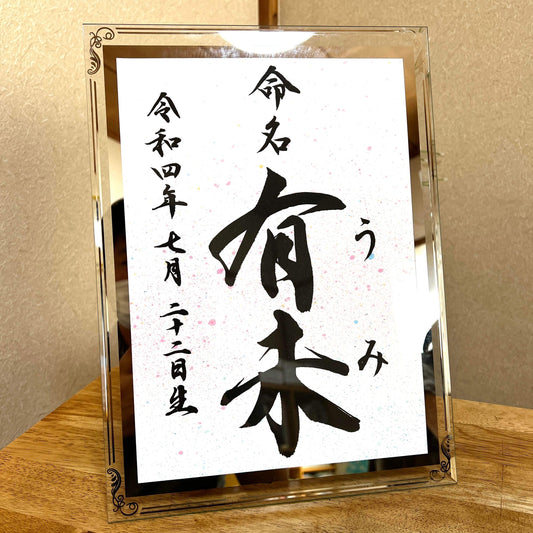 命名
有未
うみ
令和四年七月二十二日生